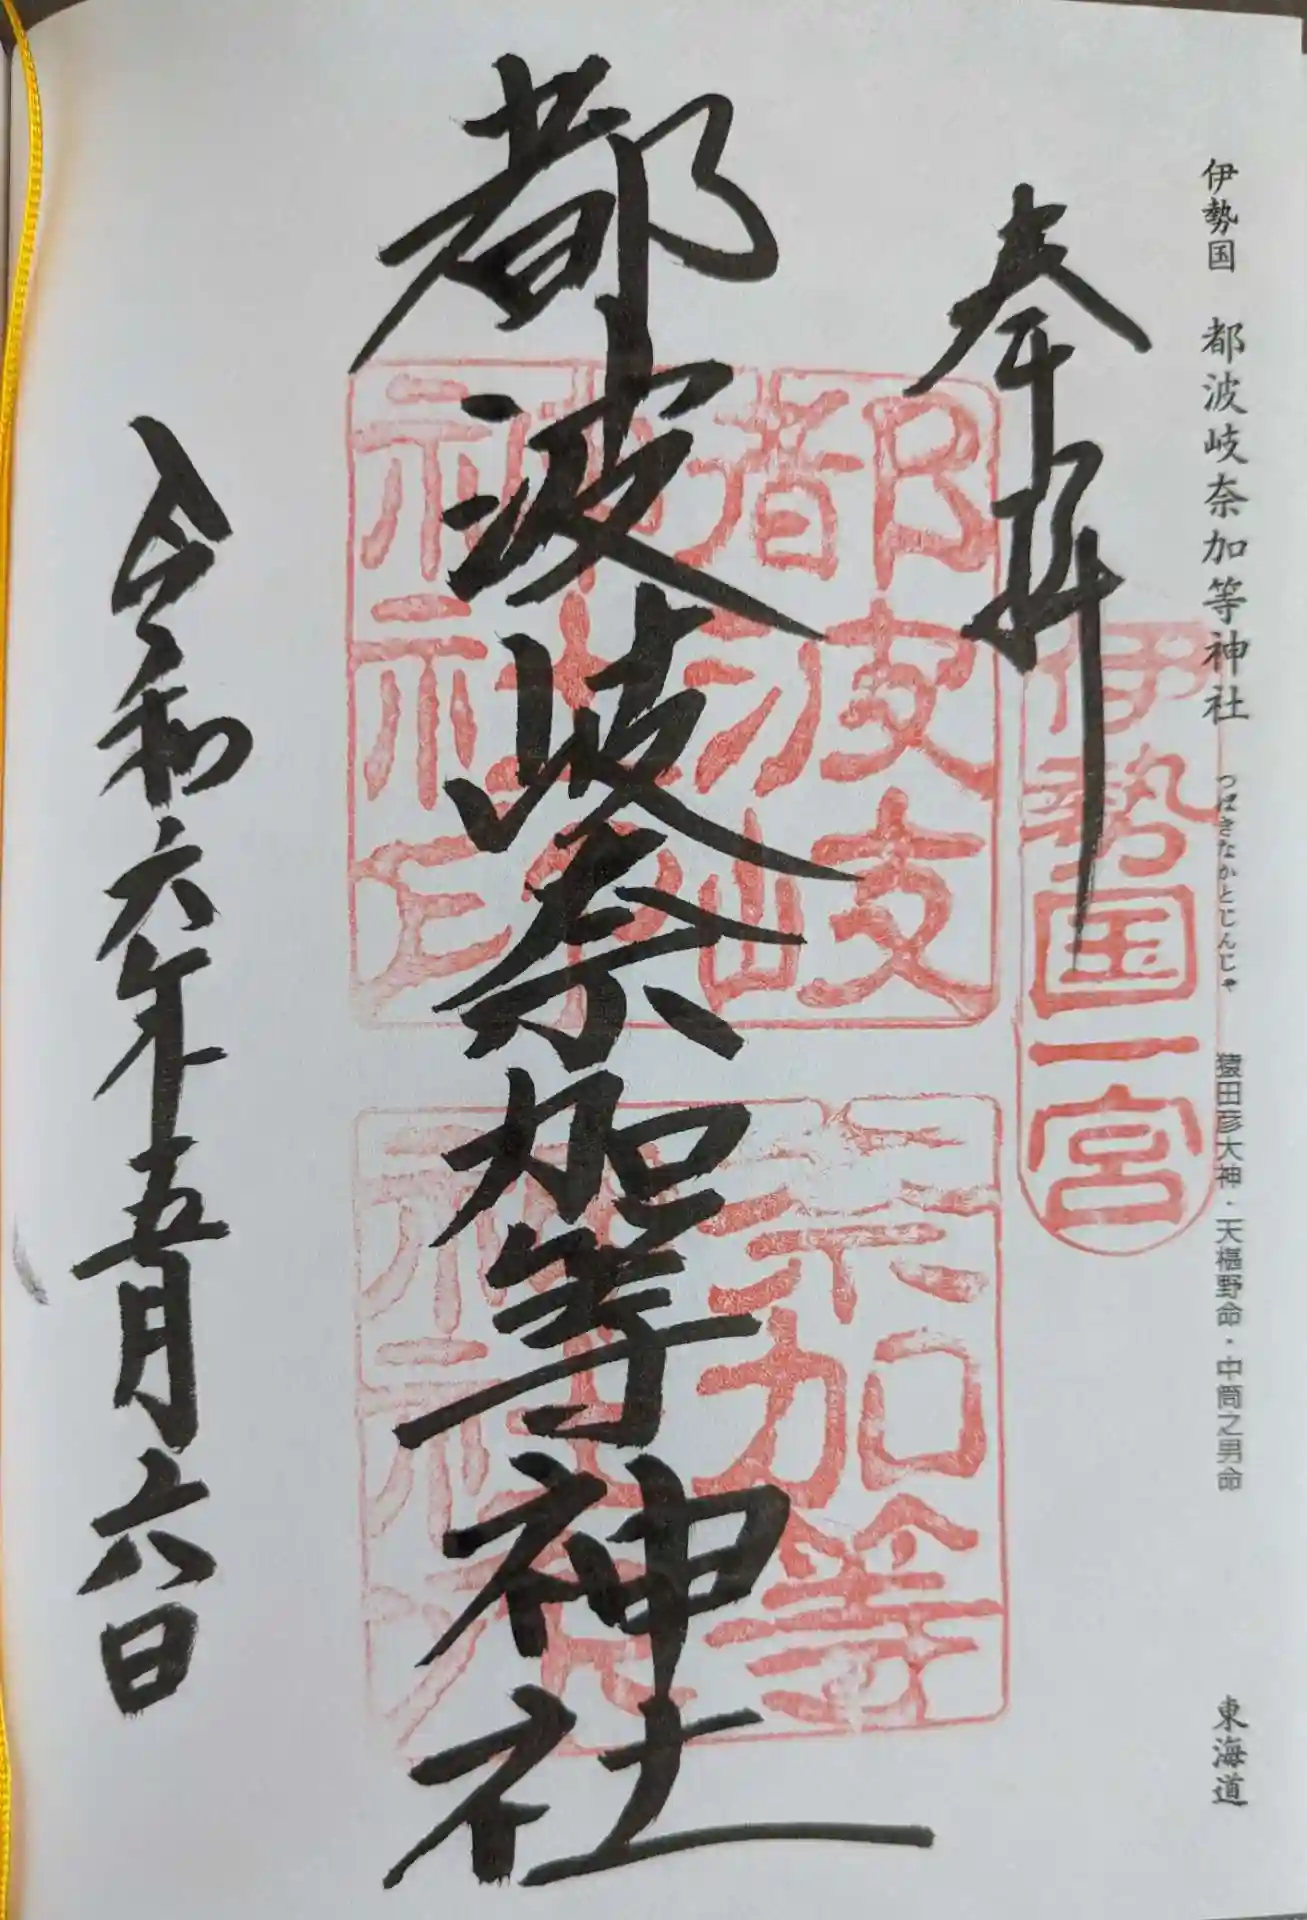 伊勢国　都波岐奈加等神社　つばきなかとじんじゃ　猿田彦大神・天椹野命・中筒之男命　東海道
奉拝
伊勢国一宮
都波岐奈加等神社
都波岐
神社印
奈加等
神社
令和六年五月六日